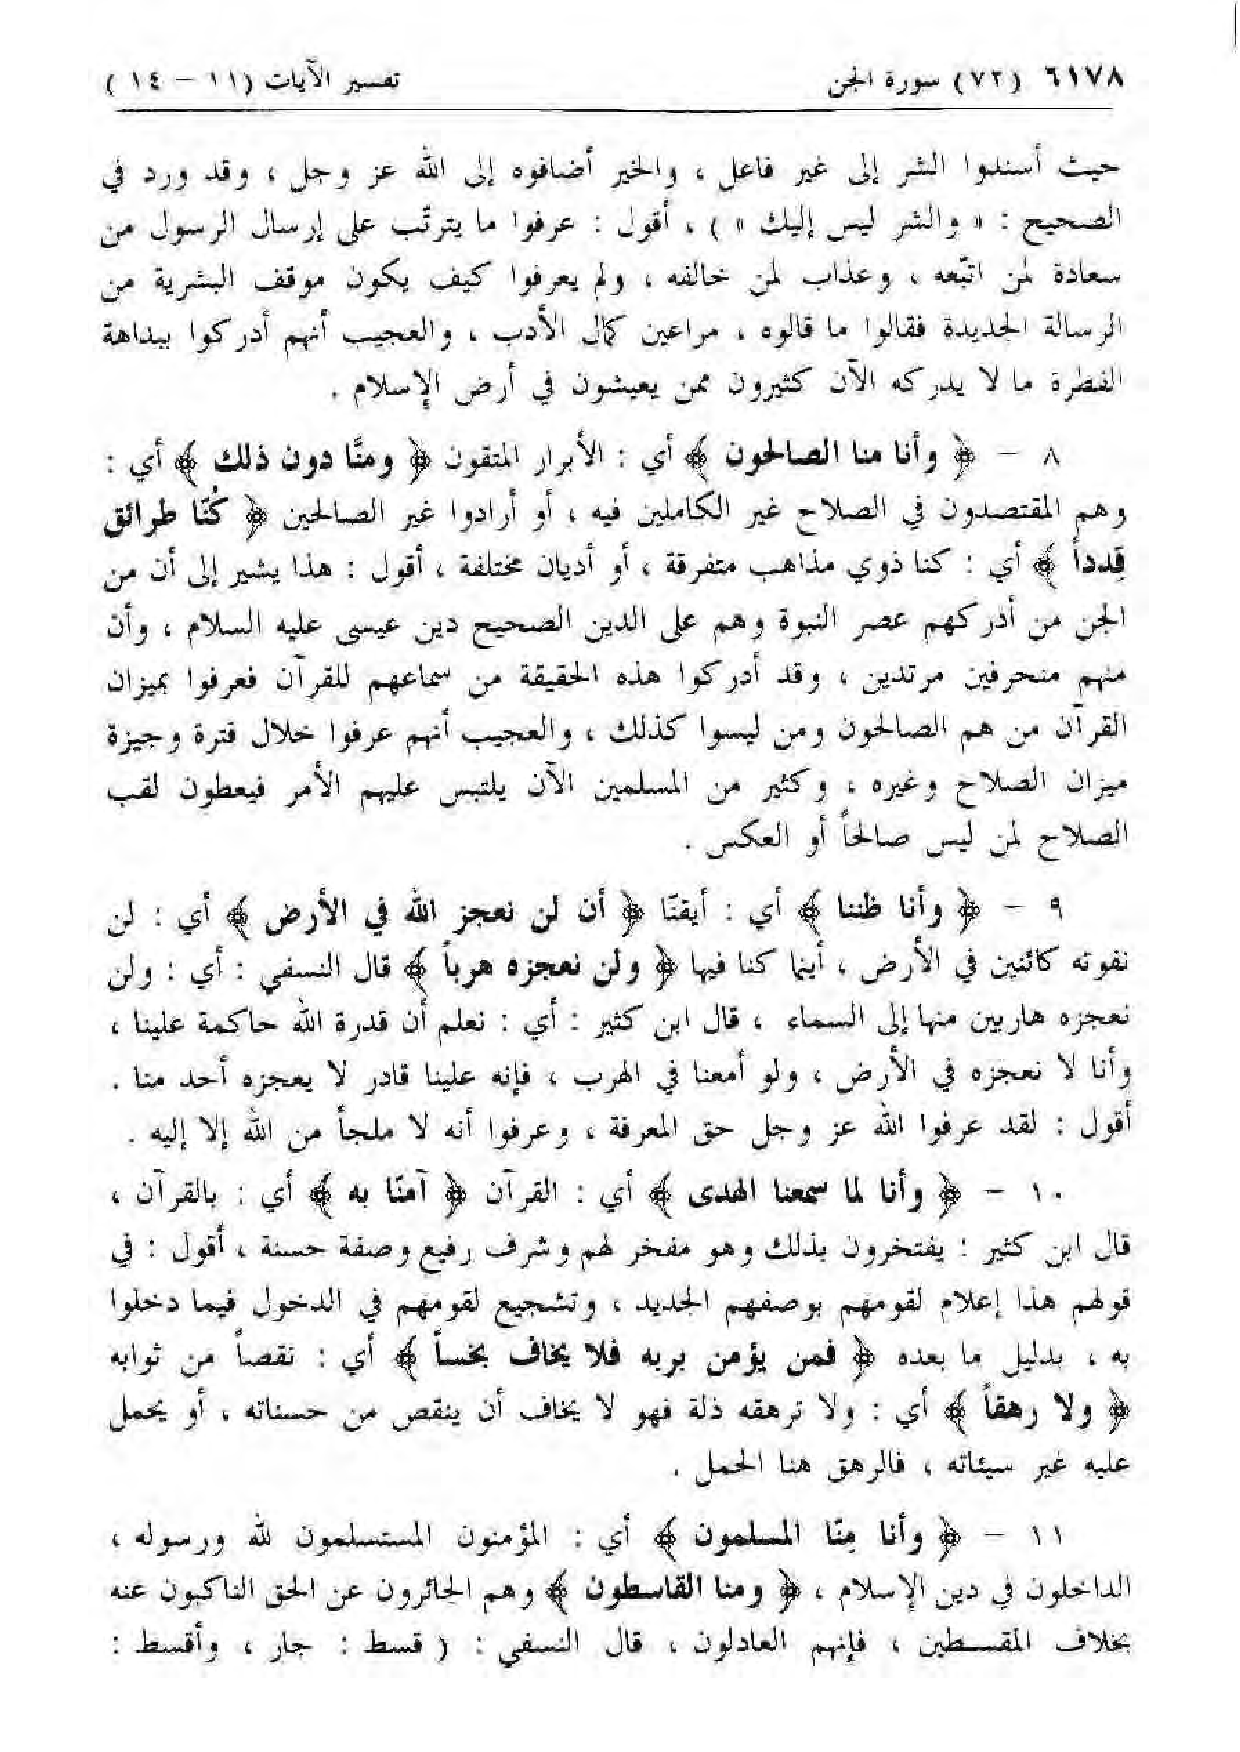 ٦١٧٨ (٧٢) سورة الجن تفسير الآيات (١١ – ١٤)
حيث أسندوا الشر إلى غير فاعل ، والخير أضافوه إلى الله عز وجل ، وقد ورد في
الصحيح : « والشر ليس إليك » ) ، أقول : عرفوا ما يترتّب على إرسال الرسول من
سعادة لمن اتبّعه ، وعذاب لمن خالفه ، ولم يعرفوا كيف يكون موقف البشرية من
الرسالة الجديدة فقالوا ما قالوه ، مراعين كمال الأدب ، والعجيب أنهم أدركوا ببداهة
الفطرة ما لا يدركه الآن كثيرون ممن يعيشون في أرض الإسلام .
٨ – ﴿ وأنا منا الصالحون ﴾ أي : الأبرار المتقون ﴿ ومنَّا دون ذلك ﴾ أي :
وهم المقتصدون في الصلاح غير الكاملين فيه ، أو أرادوا غير الصالحين ﴿ كُنّا طرائق
قِدداً ﴾ أي : كنا ذوي مذاهب متفرقة ، أو أديان مختلفة ، أقول : هذا يشير إلى أن من
الجن من أدركهم عصر النبوة وهم على الدين الصحيح دين عيسى عليه السلام ، وأن
منهم منحرفين مرتدين ، وقد أدركوا هذه الحقيقة من سماعهم للقرآن فعرفوا بميزان
القرآن من هم الصالحون ومن ليسوا كذلك ، والعجيب أنهم عرفوا خلال فترة وجيزة
ميزان الصلاح وغيره ، وكثير من المسلمين الآن يلتبس عليهم الأمر فيعطون لقب
الصلاح لمن ليس صالحاً أو العكس .
٩ – ﴿ وأنا ظننا ﴾ أي : أيقنّا ﴿ أن لن نعجز الله في الأرض ﴾ أي : لن
نفوته كائنين في الأرض ، أينما كنا فيها ﴿ ولن نعجزه هرباً ﴾ قال النسفي : أي : ولن
نعجزه هاربين منها إلى السماء ، قال ابن كثير : أي : نعلم أن قدرة الله حاكمة علينا ،
وأنا لا نعجزه في الأرض ، ولو أمعنا في الهرب ، فإنه علينا قادر لا يعجزه أحد منا .
أقول : لقد عرفوا الله عز وجل حق المعرفة ، وعرفوا أنه لا ملجأ من الله إلا إليه .
١٠ – ﴿ وأنا لما سمعنا الهدى ﴾ أي : القرآن ﴿ آمنّا به ﴾ أي : بالقرآن ،
قال ابن كثير : يفتخرون بذلك وهو مفخر لهم وشرف رفيع وصفة حسنة ، أقول : في
قولهم هذا إعلام لقومهم بوصفهم الجديد ، وتشجيع لقومهم في الدخول فيما دخلوا
به ، بدليل ما بعده ﴿ فمن يؤمن بربه فلا يخاف بخساً ﴾ أي : نقصاً من ثوابه
﴿ ولا رهقاً ﴾ أي : ولا ترهقه ذلة فهو لا يخاف أن ينقص من حسناته ، أو يحمل
عليه غير سيئاته ، فالرهق هنا الحمل .
١١ – ﴿ وأنا مِنّا المسلمون ﴾ أي : المؤمنون المستسلمون لله ورسوله ،
الداخلون في دين الإسلام ، ﴿ ومنا القاسطون ﴾ وهم الجائرون عن الحق الناكبون عنه
بخلاف المقسطين ، فإنهم العادلون ، قال النسفي : ( قسط : جار ، وأقسط :